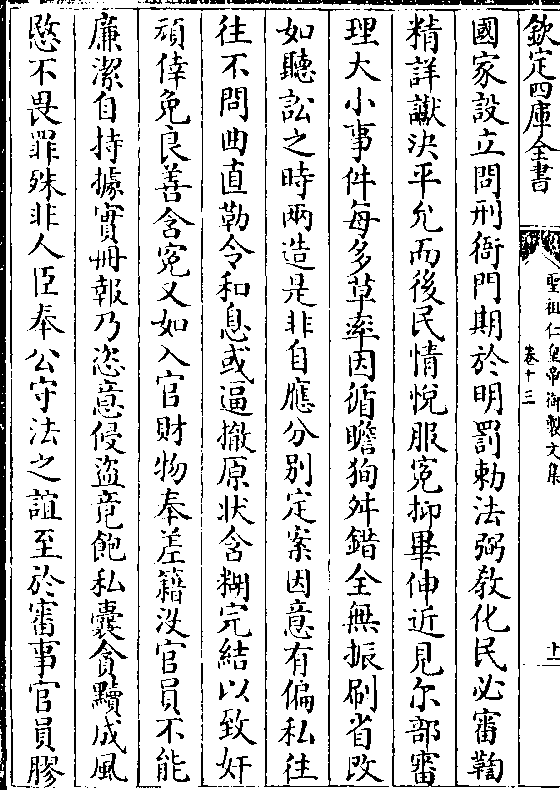 欽定四庫全書
聖祖仁皇帝御製文集
卷十三
國家設立問刑衙門期於明罰勅法弼教化民必審鞫
精詳讞決平允而後民情悅服冤抑畢伸近見尔部審
理大小事件每多草率因循瞻狥舛錯全無振刷省改
如聽訟之時兩造是非自應分別定案因意有偏私往
往不問曲直勒令和息或逼撤原狀含糊完結以致奸
頑倖免良善含冤又如入官財物奉差籍没官員不能
廉潔自持據實冊報乃恣意侵盜竟飽私囊貪黷成風
愍不畏罪殊非人臣奉公守法之誼至於審事官員膠